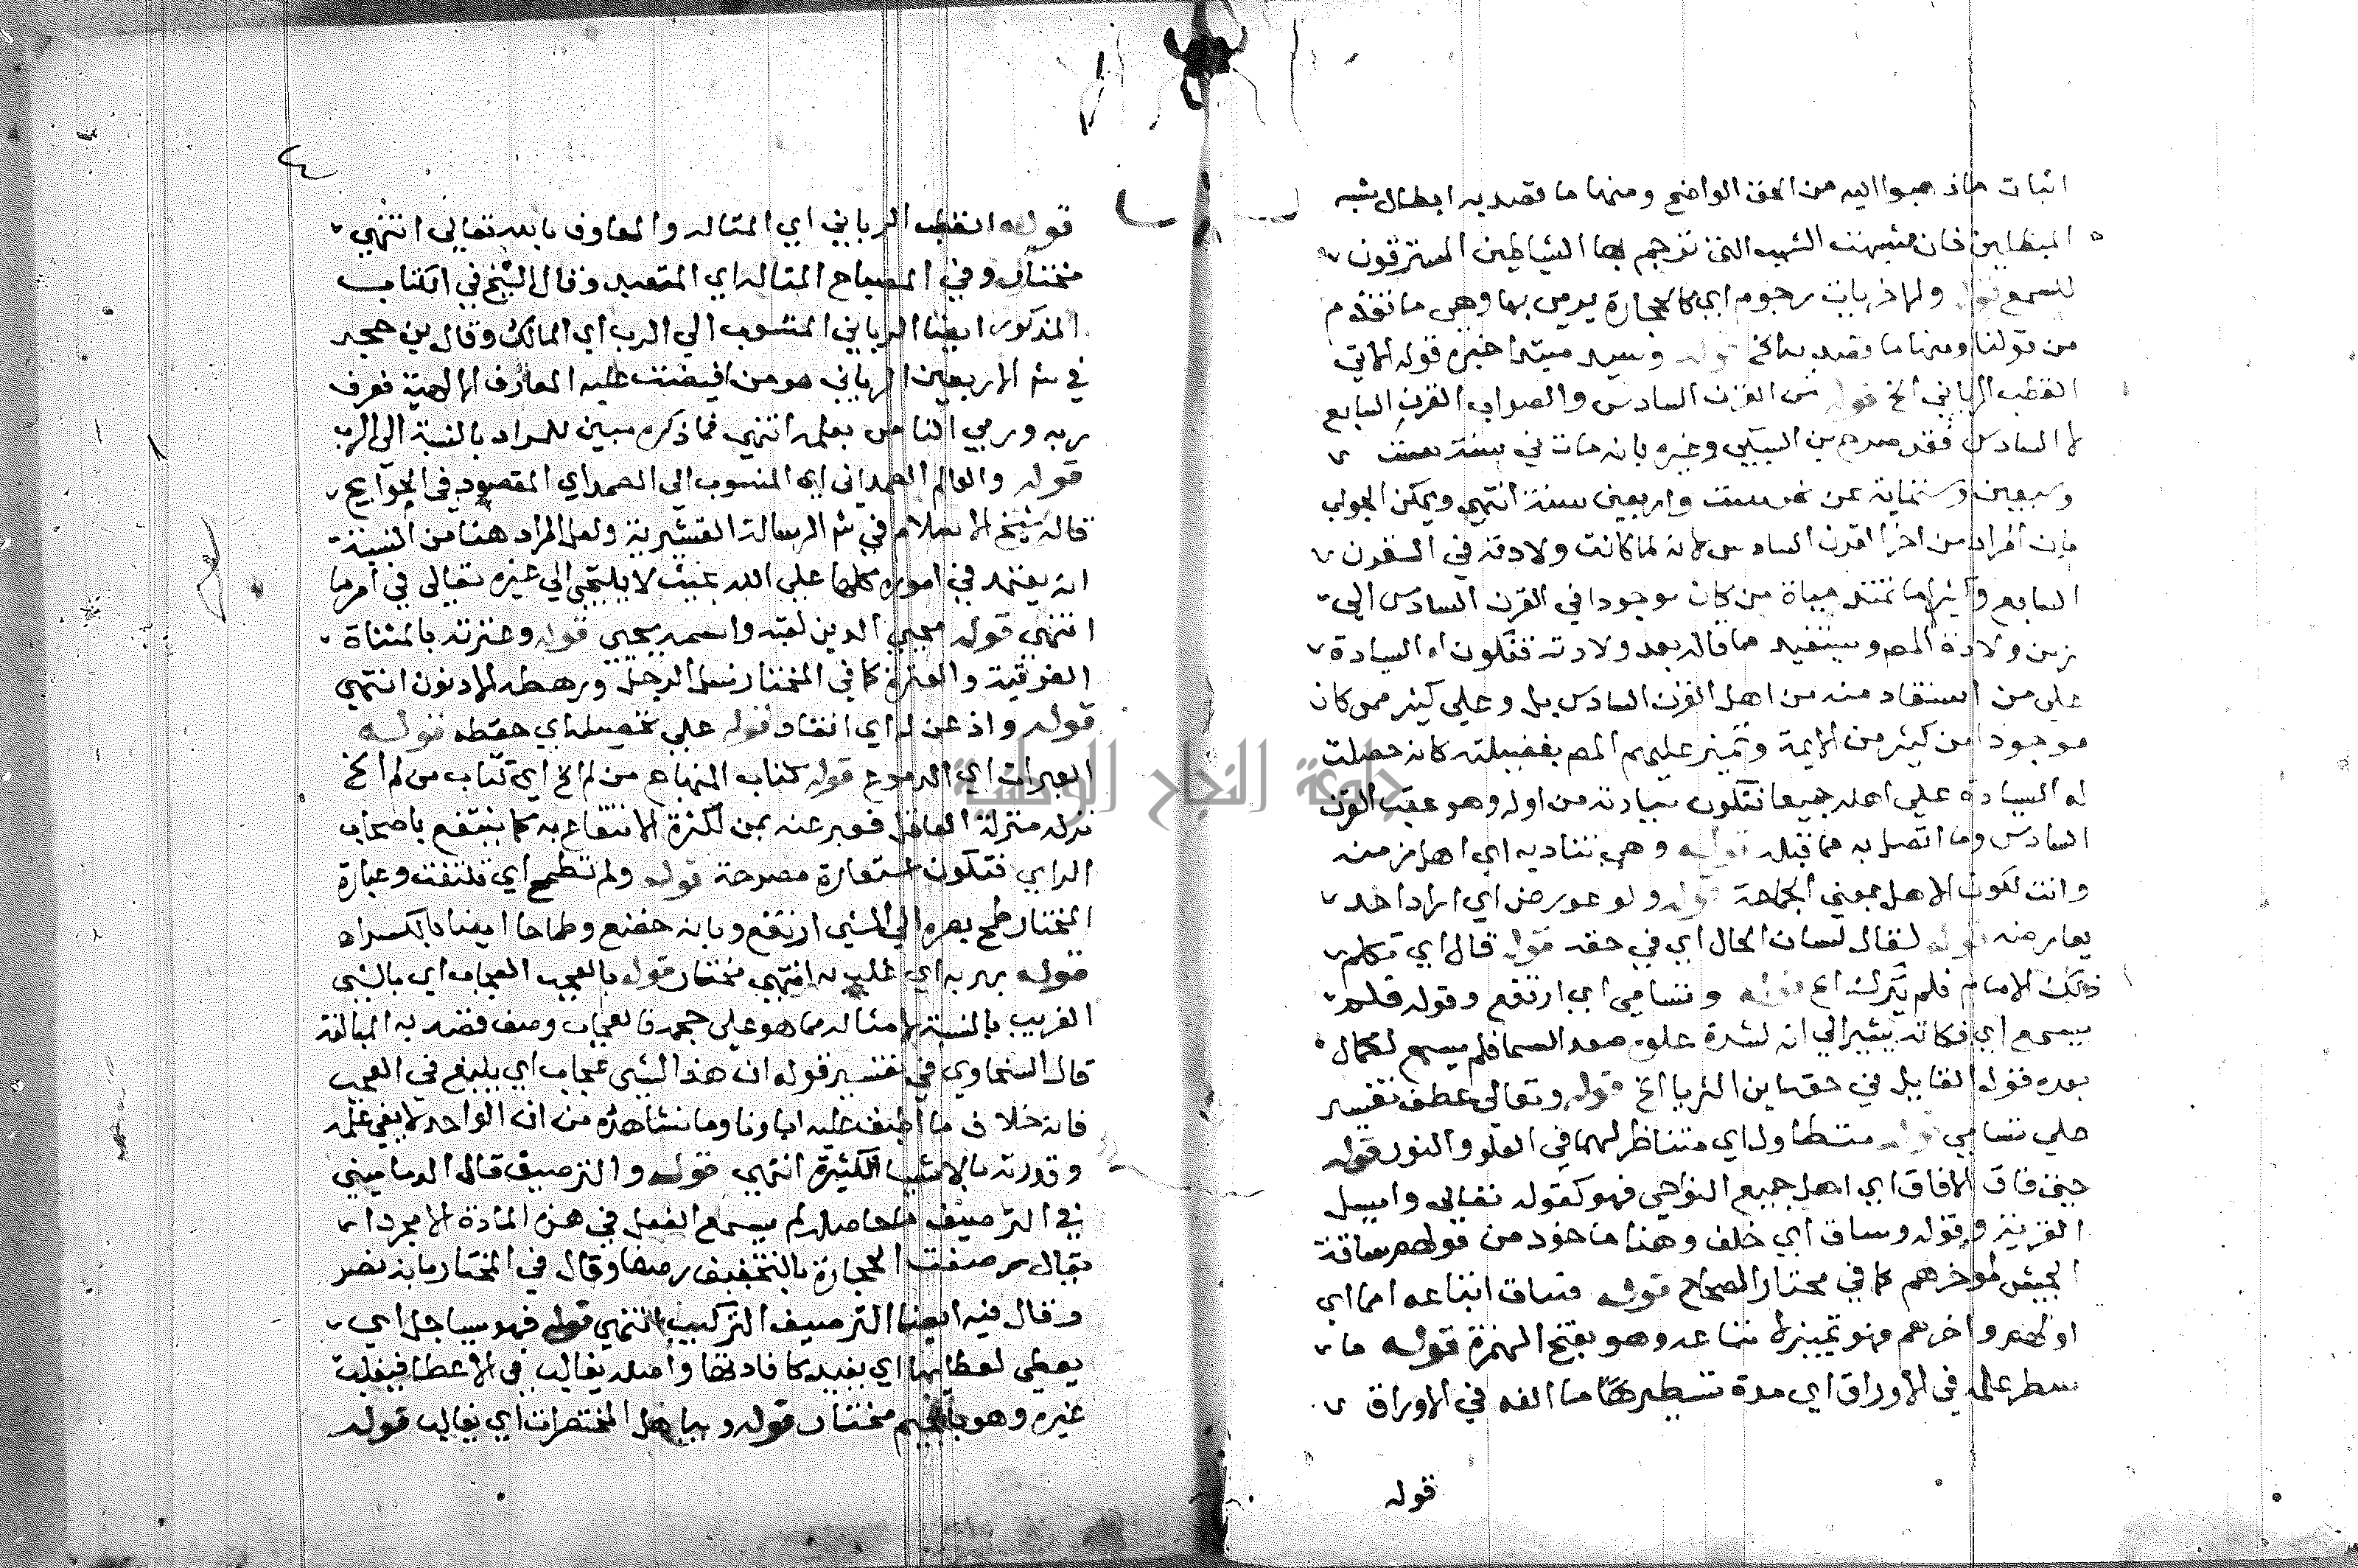 اثبات ماذهبوا اليه من الحق الواضح ومنها ما تقصد به ابطال شبه
المبطلين فان مشبهت الشهب التي ترجم بها الشياطين المسترقون
للسمع قوله ولها ذبابت رجوم اي كالحجارة يرمي بها وهي ما تقدم
من قولنا ومنها ما تقصد به الخ قوله وسيد مبتدا خبره قوله الاتي
القطب الرباني الخ قوله من القرن السادس والصواب القرن السابع
لا السادس فقد صرح بن السبكي وغيره بانه مات في سنة ست
وسبعين وستماية عن نحو ست واربعين سنة انتهي ويمكن الجواب
بان المراد من اخر القرن السادس لانه لما كانت ولادته في القرن
السابع وكثيرا ما تمتد حياة من كان موجودا في القرن السادس الي
زمن ولادة المص ويستفيد مما قاله بعد ولادته فتكون له السيادة
علي من استفاد منه من اهل القرن السادس بل وعلي كثير ممن كان
موجودا من كثير من الايمة وتميز عليهم المص بفضيلته كانه حصلت
له السيادة علي اهله جميعا فتكون سيادته من اوله وهو عقب القرن
السادس وما اتصل به مما قبله قوله وهي تناديه اي اهل زمنه
وانت لكون الاهل بمعني الجماعة قوله ولو عورض اي اراد احد
يعارضه قوله لقال لسان الحال اي في حقه قوله قال اي تكلم
ذلك الامام فلم يترك الخ قوله وتسامي اي ارتفع وقوله فلم
يسمع اي فكانه يشير الي انه لشدة علوه صعد السما فلم يسمع لكمال
بعده قوله القايل في حقه اين الثريا الخ قوله وتعالي عطف تفسير
علي تسامي قوله متطاول اي متناظر لهما في العلو والنور قوله
حتي فاق الافاق اي اهل جميع النواحي فهو كقوله تعالي واسيل
القرية وقوله وساق اي خلف وهذا ماخوذ من قولهم ساقة
الجيش لموخرهم كما في مختار الصحاح قوله فساق اتباعه امما اي
اولهم واخرهم فهو تمييز لاتباعه وهو بفتح الهمزة قوله ما
سطر علمه في الاوراق اي مدة تسطير ما الفه في الاوراق
قوله
قوله القطب الرباني اي المتاله والعارف بالله تعالي انتهي
مختار وفي المصباح المتاله اي المتعبد وقال الشيخ في الكتاب
المذكور ايضا الرباني المنسوب الي الرب اي المالك وقال بن حجر
في شرح الاربعين الرباني هو من افيضت عليه المعارف الالهية فعرف
ربه وربي الناس بعلمه انتهي فما ذكره مبين للمراد بالنسبة الي الرب
قوله والعالم الصمداني اي المنسوب الي الصمد اي المقصود في الحوايج
قاله شيخ الاسلام في شرح الرسالة القشيرية ولعل المراد هنا من النسبة
انه يعتمد في اموره كلها علي الله بحيث لا يلتجي الي غيره تعالي في امر ما
انتهي قوله محيي الدين لقبه واسمه يحيي قوله وعترته بالمثناة
الفوقية والعترة كما في المختار نسل الرجل ورهطه الادنون انتهي
قوله واذعن له اي انقاد قوله علي تحصيله اي حفظه قوله
العبرات اي الدموع قوله كتاب المنهاج من لم الخ اي كتاب من لم الخ
نزله منزلة العاقل فعبر عنه بمن لكثرة الانتفاع به كما ينتفع باصحاب
الراي فتكون استعارة مصرحة قوله ولم تطمح اي تلتفت وعبارة
المختار طمح بصره الي الشي ارتفع وبابه خضع وطماحا ايضا بالكسر اه
قوله بهر به اي غلب به انتهي مختار قوله بالعجب العجاب اي بالشي
الغريب بالنسبة لامثاله مما هو علي حجمه فالعجاب وصف قصد به المبالغة
قال السخاوي في تفسير قوله ان هذا لشي عجاب اي بليغ في العجب
فانه خلاف ما اطبق عليه اباونا وما نشاهده من ان الواحد لا يفي علمه
وقدرته بالاشيا الكثيرة انتهي قوله والترصيف قال الدماميني
في الترصيف ما حاصله لم يسمع الفعل في هذه المادة الا مجردا
يقال رصفت الحجارة بالتخفيف رصفا وقال في المختار بابه نصر
وقال فيه ايضا الترصيف التركيب انتهي قوله فهو يساجل اي
يعطي لعطايها اي يفيد كافادتها واصله يغالب في الاعطا فيغلب
غيره وهو بالجيم مختار قوله ويباهل المختصرات اي يغالب قوله
جامعة النجاح الوطنية